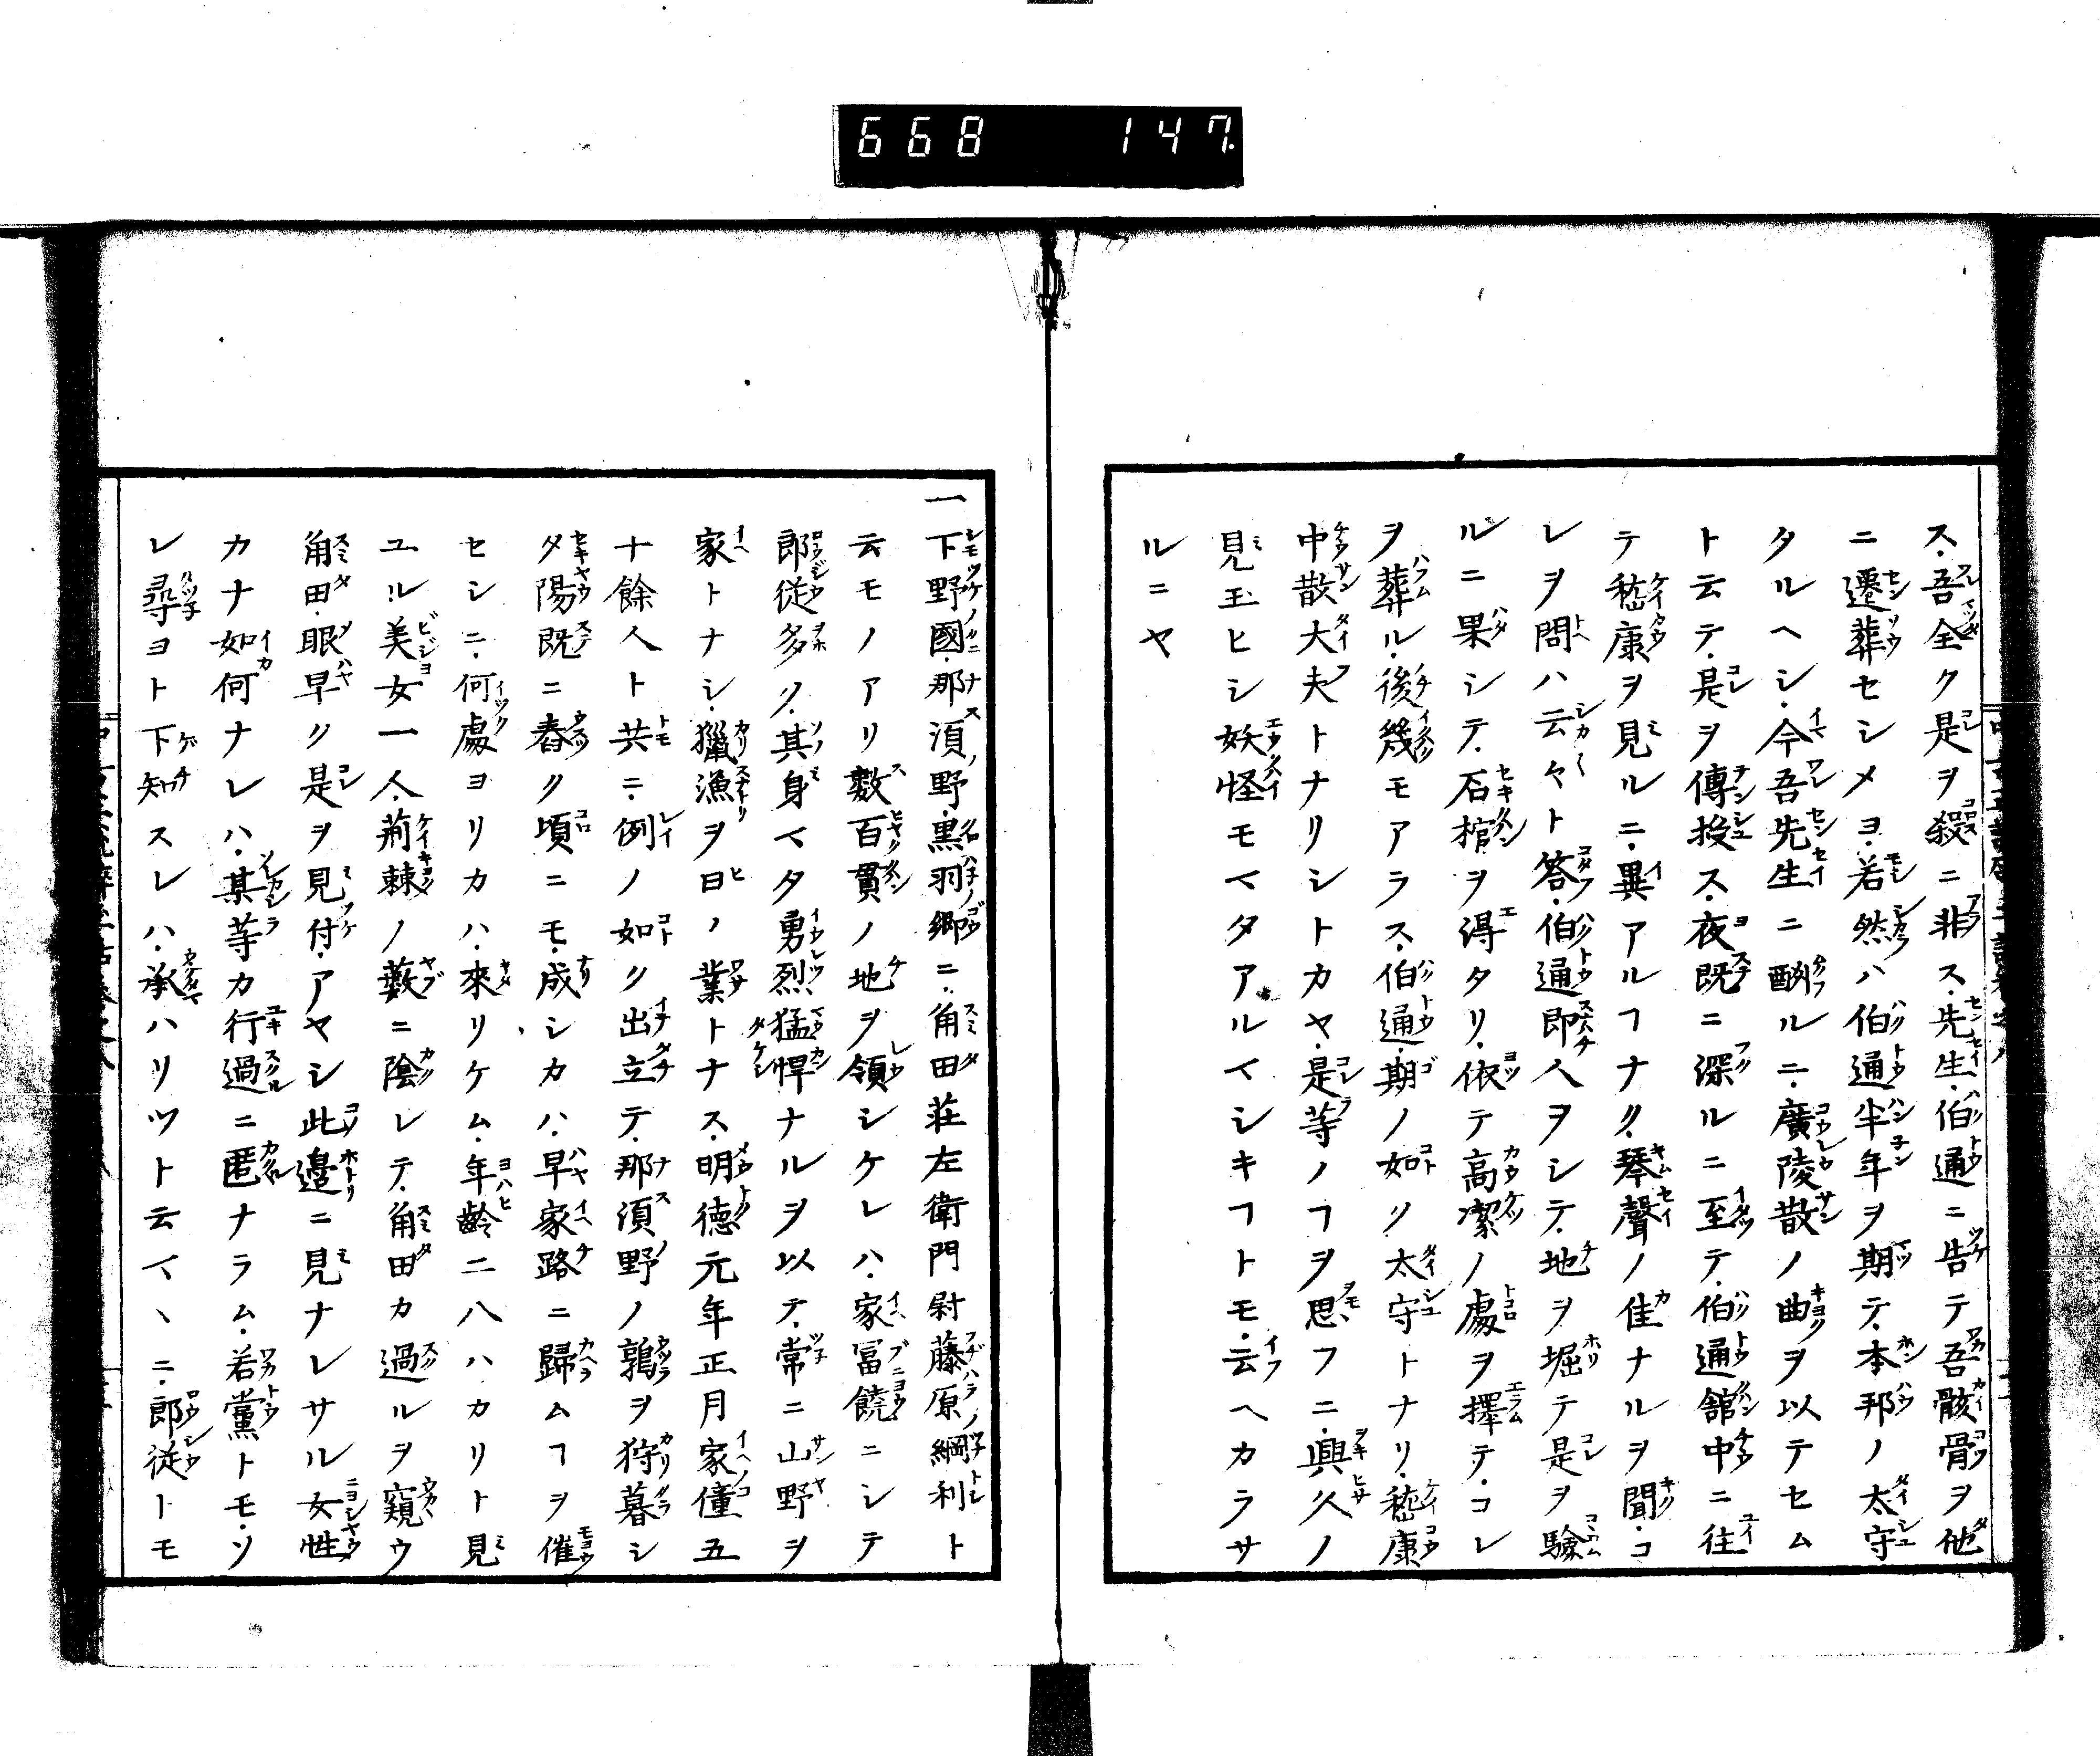 668 147
ス吾全ク是ヲ殺ニ非ス先生伯通ニ告テ吾骸骨ヲ他
ニ遷葬セシメヨ若然ハ伯通半年ヲ期テ本邦ノ太守
タルヘシ今吾先生ニ酬ルニ廣陵散ノ曲ヲ以テセム
ト云テ是ヲ傳授ス夜既ニ深ルニ至テ伯通舘中ニ往
テ嵆康ヲ見ルニ異アルヿナク琴聲ノ佳ナルヲ聞コ
レヲ問ハ云々ト答伯通即人ヲシテ地ヲ堀テ是ヲ驗
ルニ果シテ石棺ヲ得タリ依テ高潔ノ處ヲ擇テコレ
ヲ葬ル後幾モアラス伯通期ノ如ク太守トナリ嵆康
中散大夫トナリシトカヤ是等ノヿヲ思フニ興久ノ
見玉ヒシ妖怪モイタアルイシキヿトモ云ヘカラサ
ルニヤ
一下野國那湏野黒羽郷ニ角田荘左衛門尉藤原綱利ト
云モノアリ數百貫ノ地ヲ領シケレハ家冨饒ニシテ
郎従多ク其身マタ勇烈猛悍ナルヲ以テ常ニ山野ヲ
家トナシ獵漁ヲ日ノ業トナス明徳元年正月家僮五
十餘人ト共ニ例ノ如ク出立テ那湏野ノ鶉ヲ狩暮シ
夕陽既ニ舂ク頃ニモ成シカハ早家路ニ歸ムヿヲ催
セシニ何處ヨリカハ來リケム年齢二八ハカリト見
ユル美女一人荊棘ノ藪ニ陰レテ角田カ過ルヲ窺ウ
角田眼早ク是ヲ見付アヤシ此邉ニ見ナレサル女性
カナ如何ナレハ某等カ行過ニ匿ナラム若黨トモソ
レ尋ヨト下知スレハ承ハリツト云イヽニ郎従トモ